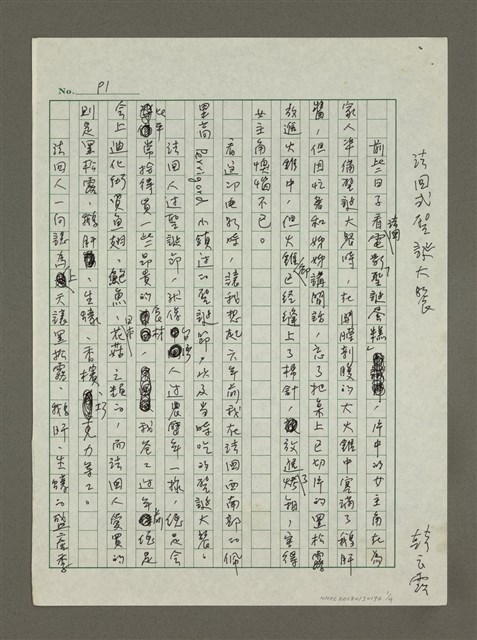 No. P1
法国式聖誕大餐
韓良露
前些日子看法国電影「聖誕蛋糕」,片中的女主角在為
家人準備聖誕大餐時,在開膛剖腹的大火雞中塞滿了鵝肝
醬,但因忙着和姊姊講閒話,忘了把桌上已切片的黑松露
放進火雞中,但火雞卻已經縫上了棉針,放進了烤箱,害得
女主角懊惱不已。
看這部電影時,讓我想起六年前我在法国西南部的佩
里高 Perrigord 小鎮過的聖誕節,以及当時吃的聖誕大餐。
法国人过聖誕節,就像台灣人过農曆年一樣,總是会
比平常捨得買一些昂貴的食材,我爸爸過年前總是
会上迪化街買魚翅、鮑魚、日本花菇之類的,而法国人愛買的
則是黑松露、鵝肝、生蠔、香檳、巧克力等等。
法国人一向認為上天讓黑松露、鵝肝、生蠔的盛產季